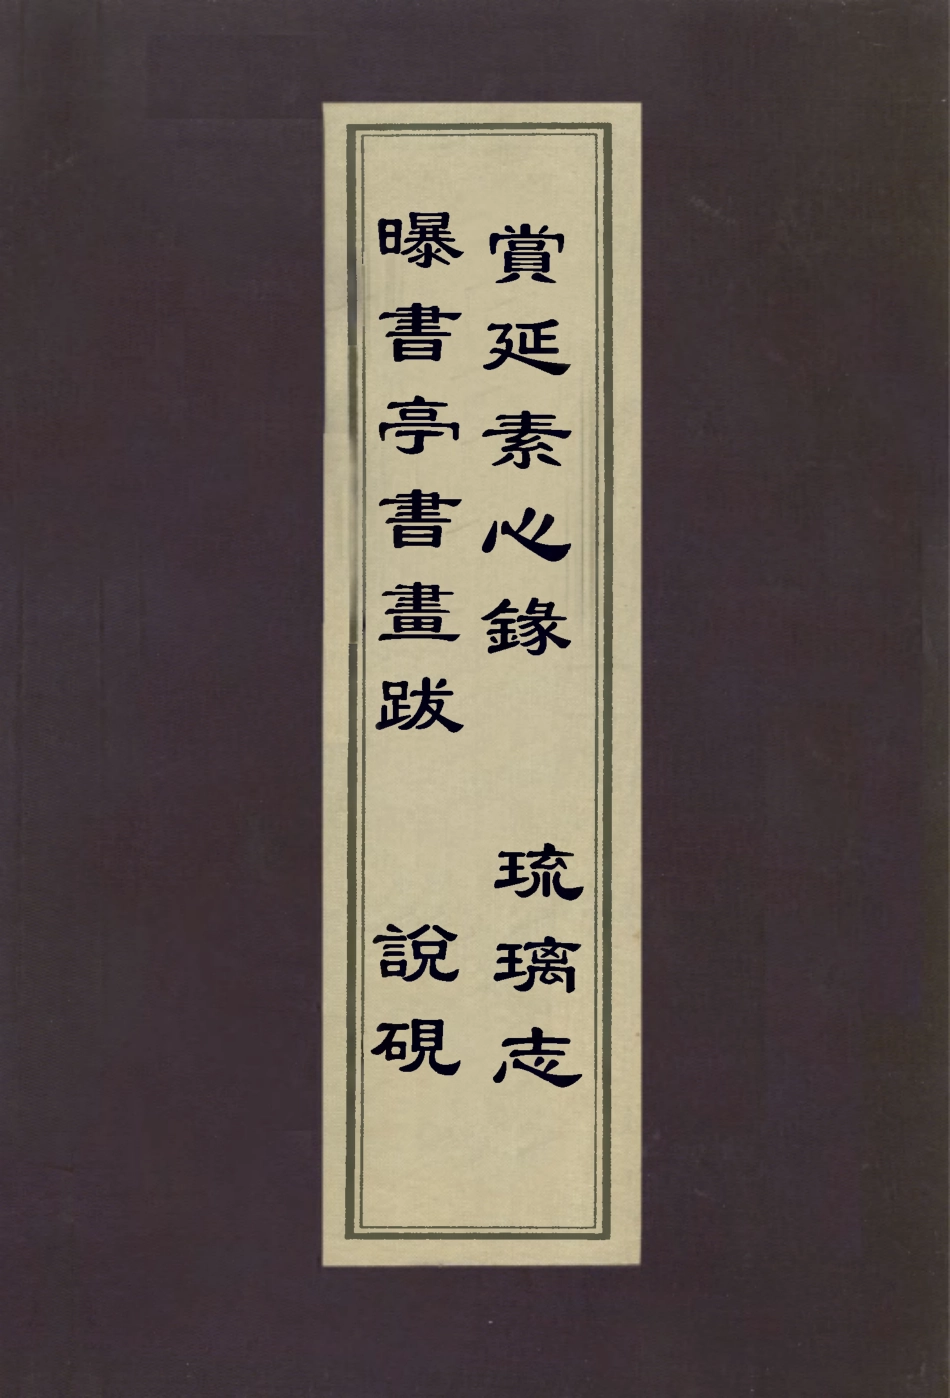 賞延素心錄　琉璃志
曝書亭書畫跋　說硯